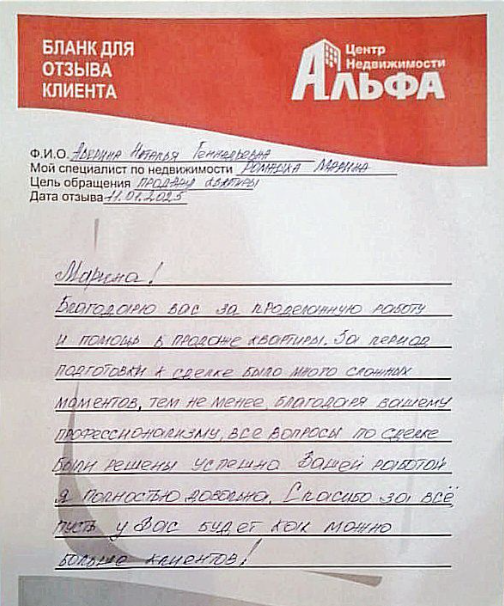 БЛАНК ДЛЯ
ОТЗЫВА
КЛИЕНТА
Центр
Недвижимости
АЛЬФА
Ф.И.О. Аверина Наталья Геннадьевна
Мой специалист по недвижимости Ромашка Марина
Цель обращения продажа квартиры
Дата отзыва 11.01.2025
Марина!
Благодарю вас за проделанную работу
и помощь в продаже квартиры. За период
подготовки к сделке было много сложных
маментов, тем не менее, благодаря вашему
профессионализму, все вопросы по сделке
были решены успешно Вашей работой
я полностью довольна. Спасибо за всё
пусть у Вас будет как можно
больше клиентов!